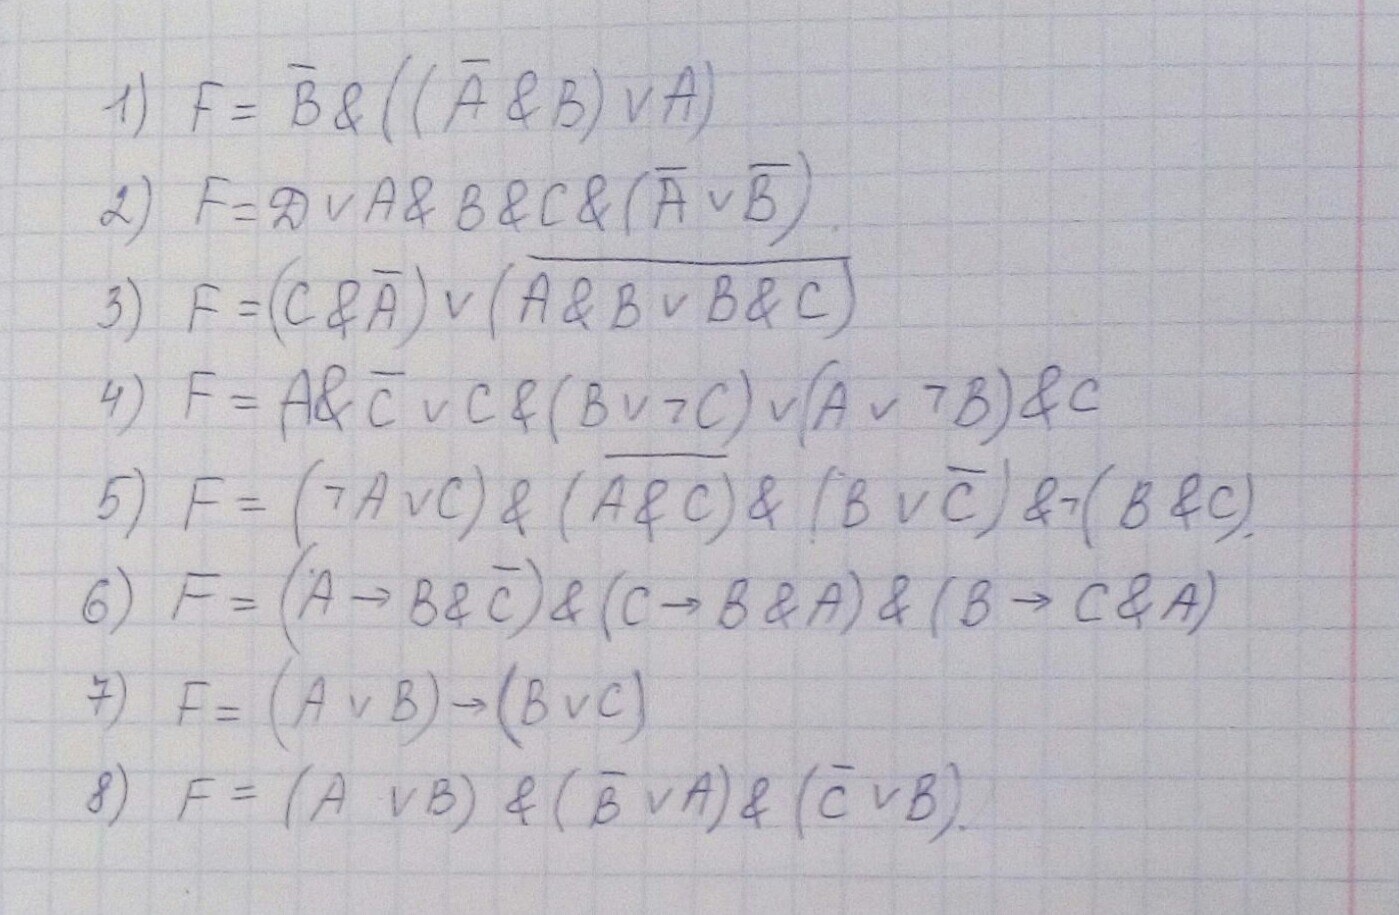 1) F = B̅ & ((A̅ & B) ∨ A)
2) F = D ∨ A & B & C & (A̅ ∨ B̅).
3) F = (C & A̅) ∨ (A̅ ̅&̅ ̅B̅ ̅∨̅ ̅B̅ ̅&̅ ̅C̅)
4) F = A & C̅ ∨ C & (B ∨ ¬C) ∨ (A ∨ ¬B) & C
5) F = (¬A ∨ C) & (A̅ ̅&̅ ̅C̅) & (B ∨ C̅) & ¬(B & C).
6) F = (A → B & C̅) & (C → B & A) & (B → C & A)
7) F = (A ∨ B) → (B ∨ C)
8) F = (A ∨ B) & (B̅ ∨ A) & (C̅ ∨ B).